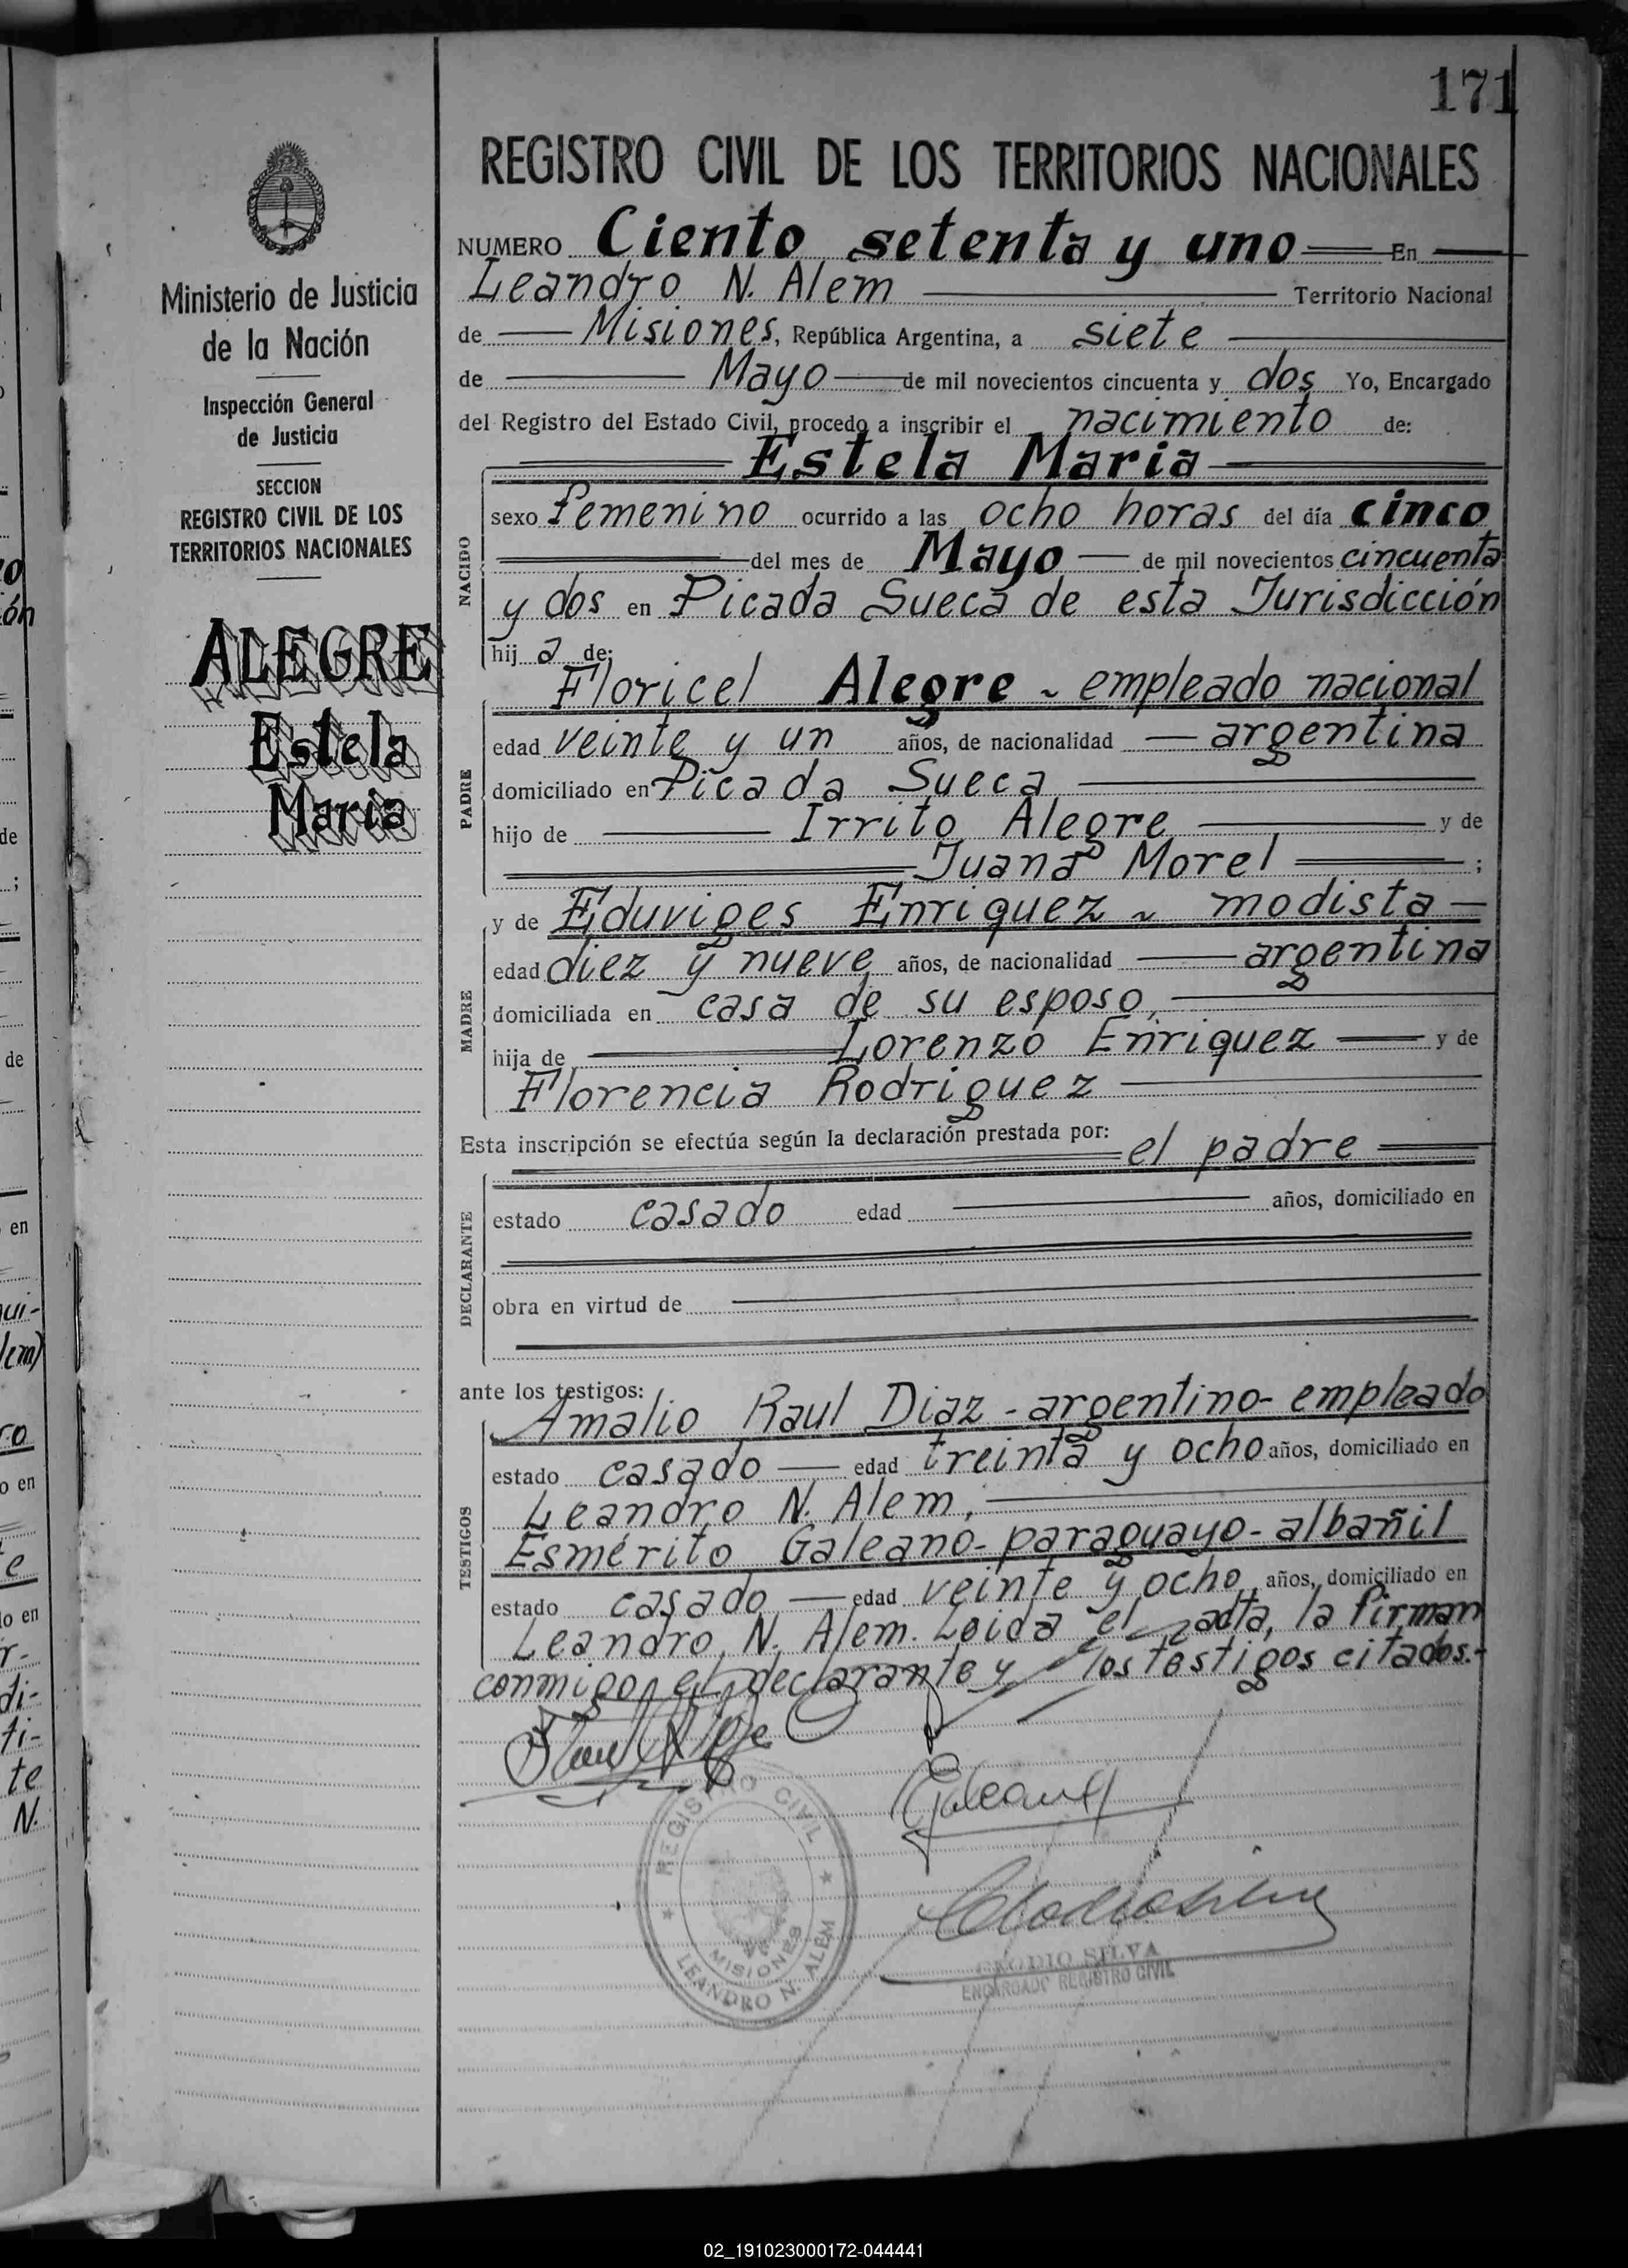 171
REGISTRO CIVIL DE LOS TERRITORIOS NACIONALES
Ministerio de Justicia
de la Nación
Inspección General
de Justicia
SECCION
REGISTRO CIVIL DE LOS
TERRITORIOS NACIONALES
ALEGRE
Estela
Maria
NUMERO Ciento setenta y uno En
Leandro N. Alem Territorio Nacional
de Misiones, República Argentina, a siete
de Mayo de mil novecientos cincuenta y dos Yo, Encargado
del Registro del Estado Civil, procedo a inscribir el nacimiento de:
Estela Maria
NACIDO
sexo femenino ocurrido a las ocho horas del día cinco
del mes de Mayo de mil novecientos cincuenta
y dos en Picada Sueca de esta Jurisdicción
hij a de:
PADRE
Floricel Alegre ~ empleado nacional
edad veinte y un años, de nacionalidad argentina
domiciliado en Picada Sueca
hijo de Irrito Alegre y de
Juana Morel ;
MADRE
y de Eduviges Enriquez ~ modista
edad diez y nueve años, de nacionalidad argentina
domiciliada en casa de su esposo,
hija de Lorenzo Enriquez y de
Florencia Rodriguez
Esta inscripción se efectúa según la declaración prestada por: el padre
DECLARANTE
estado casado edad años, domiciliado en
obra en virtud de
ante los testigos:
TESTIGOS
Amalio Raul Diaz - argentino - empleado
estado casado edad treinta y ocho años, domiciliado en
Leandro N. Alem,
Esmérito Galeano - paraguayo - albañil
estado casado edad veinte y ocho años, domiciliado en
Leandro N. Alem. Leida el acta, la firman
conmigo, el declarante y los testigos citados.-
Galeano
REGISTRO CIVIL
MISIONES
LEANDRO N. ALEM
CLODIO SILVA
ENCARGADO REGISTRO CIVIL
02_191023000172-044441